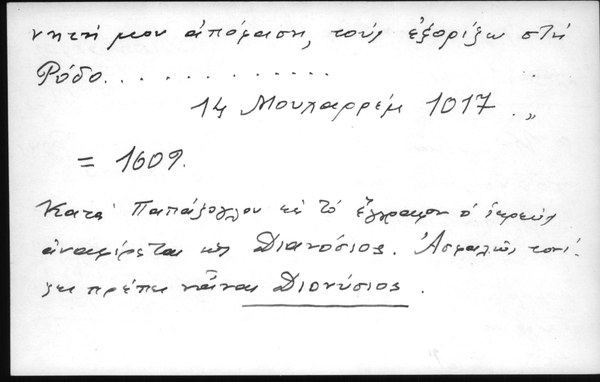 νητή μου απόφαση, τους εξορίζω στή
Ρόδο. . . . . . . . . . . . . .
14 Μουχαρρέμ 1017 . „
= 1609.
Κατά Παπάζογλου εις τό έγγραφον ο ιερεύς
αναφέρεται ως Διανόσιος. Ασφαλώς τονί-
ζει πρέπει νάναι Διονύσιος.